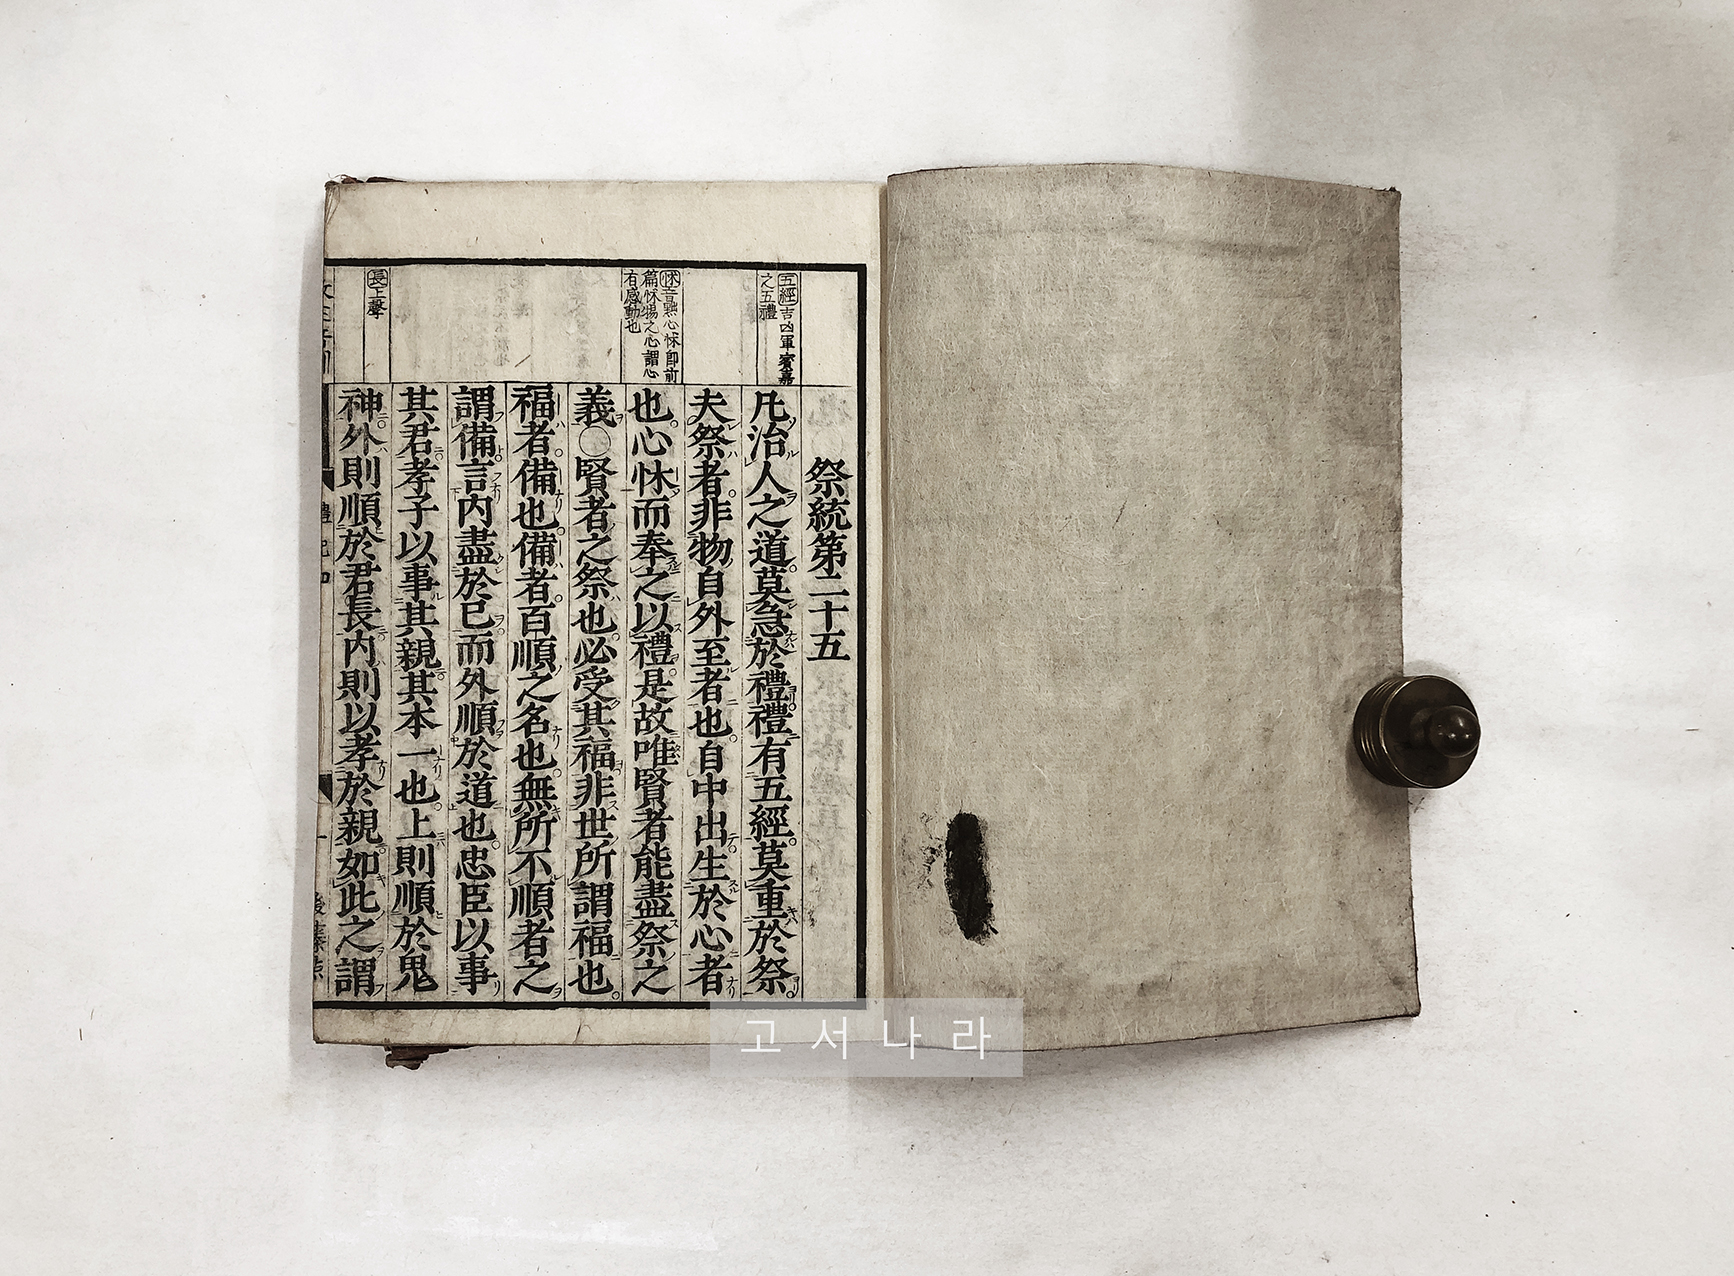 祭統第二十五
凡治人之道莫急於禮禮有五經莫重於祭
夫祭者非物自外至者也自中出生於心者
也心怵而奉之以禮是故唯賢者能盡祭之
義○賢者之祭也必受其福非世所謂福也
福者備也備者百順之名也無所不順者之
謂備言内盡於己而外順於道也忠臣以事
其君孝子以事其親其本一也上則順於鬼
神外則順於君長内則以孝於親如此之謂
五經吉凶軍賓嘉
之五禮
怵音黜心怵即前
篇怵惕之心謂心
有感動也
長上聲
고서나라